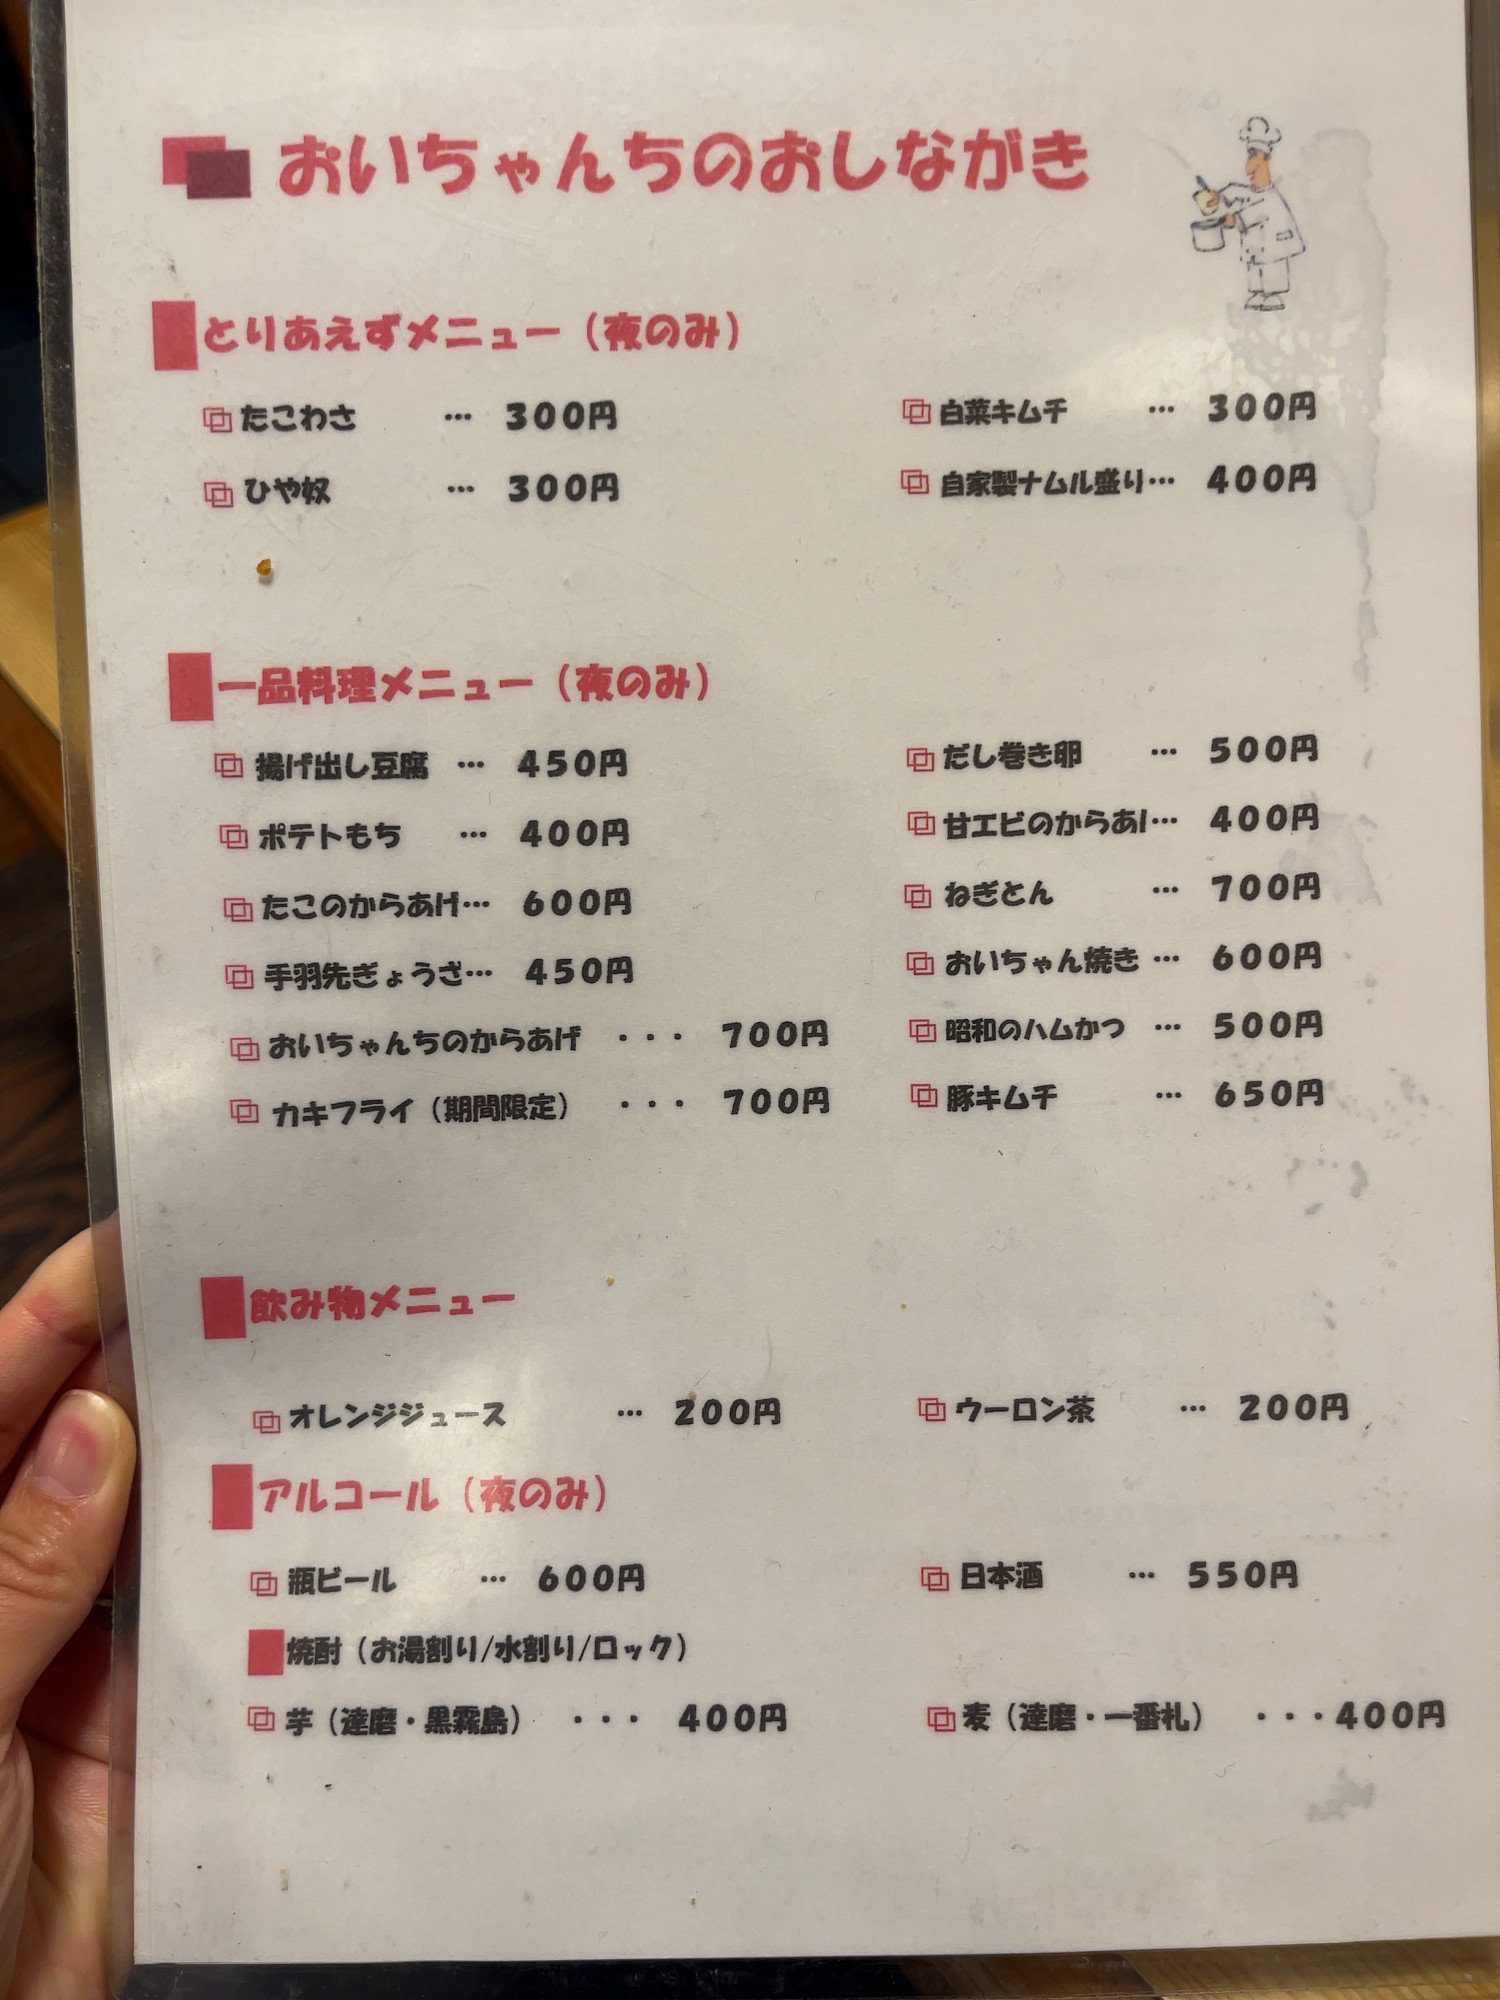 おいちゃんちのおしながき
とりあえずメニュー（夜のみ）
たこわさ … 300円 白菜キムチ … 300円
ひや奴 … 300円 自家製ナムル盛り… 400円
一品料理メニュー（夜のみ）
揚げ出し豆腐 … 450円 だし巻き卵 … 500円
ポテトもち … 400円 甘エビのからあ… 400円
たこのからあげ… 600円 ねぎとん … 700円
手羽先ぎょうざ… 450円 おいちゃん焼き … 600円
おいちゃんちのからあげ ・・・ 700円 昭和のハムかつ … 500円
カキフライ（期間限定） ・・・ 700円 豚キムチ … 650円
飲み物メニュー
オレンジジュース … 200円 ウーロン茶 … 200円
アルコール（夜のみ）
瓶ビール … 600円 日本酒 … 550円
焼酎（お湯割り/水割り/ロック）
芋（達磨・黒霧島） ・・・ 400円 麦（達磨・一番札） ・・・400円